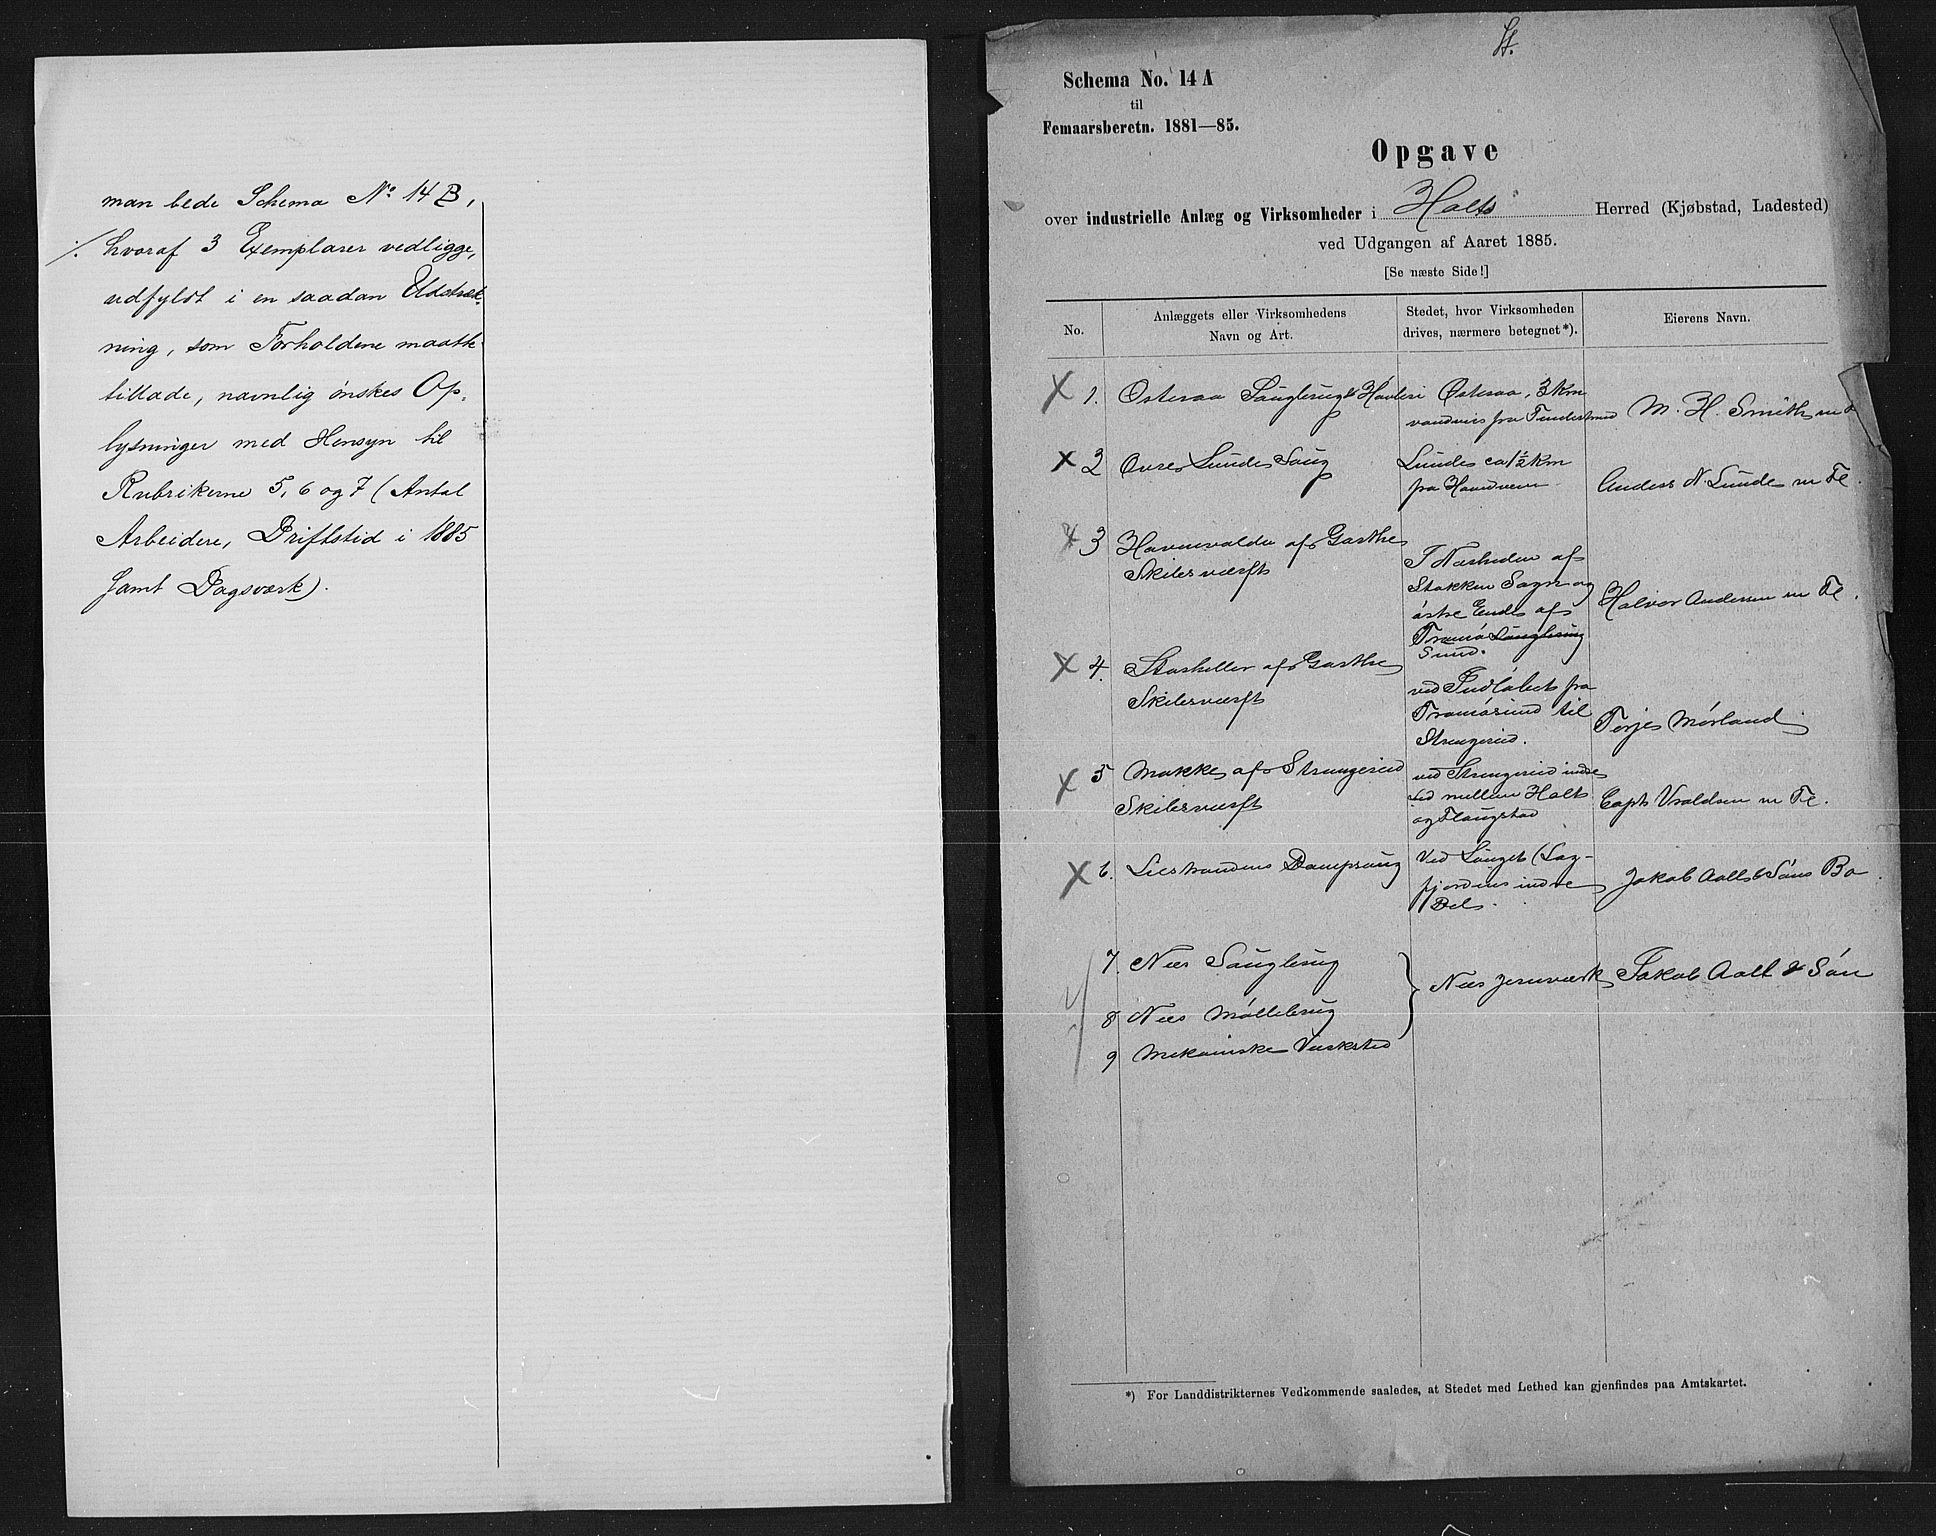 man bede Schema No 14 B,
./. hvoraf 3 Exemplarer vedligge,
udfyldt i en saadan Udstræk-
ning, som Forholdene maatte
tillade, navnlig ønskes Op-
lysninger med Hensyn til
Rubrikerne 5, 6 og 7 (Antal
Arbeidere, Driftstid i 1885
samt Dagsværk).
Schema No. 14 A
til
Femaarsberetn. 1881—85.
Opgave
over industrielle Anlæg og Virksomheder i Holts Herred (Kjøbstad, Ladested)
ved Udgangen af Aaret 1885.
[Se næste Side!]
No.
Anlæggets eller Virksomhedens
Navn og Art.
Stedet, hvor Virksomheden
drives, nærmere betegnet*).
Eierens Navn.
X 1. Osteraa Saugbrug & Høvleri
Østeraa, 3 km
fra
M. H. Smith
X 2 Lunde Saug
Lunde ca 1/2 km
fra
Anders N. Lunde m Fl.
X 3 af Garthe
Skibsværft
I Nærheden af
Stokken og
østre Ende af
Tromø Saugbrug
Sund.
Halvor Andersen m Fl.
X 4. af Garthe
Skibsværft
ved Indløbet fra
Tromøsund til
Strengereid.
Terje Mørland
X 5 af Strengereid
Skibsværft
ved Strengereid
mellem Holt
og Flangstad
Capt Vraldsen m Fl.
X 6. Liestrandens Dampsaug
Ved Sauget (Sag-
fjordens indre
Del.
Jakob Aall & Søns Bo.
7. Næs Saugbrug
8 Næs Møllebrug
Næs Jernværk
Jakob Aall & Søn
9 Mekaniske Værksted
*) For Landdistrikternes Vedkommende saaledes, at Stedet med Lethed kan gjenfindes paa Amtskartet.